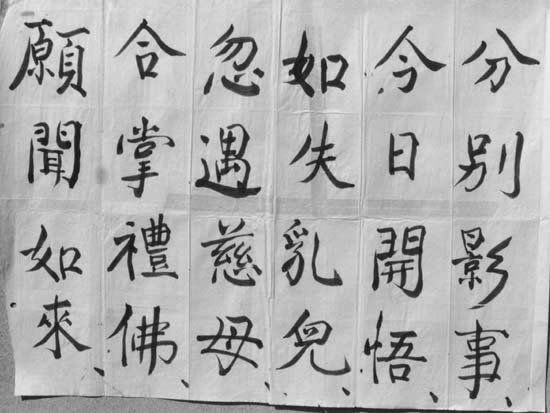 分別影事、
今日開悟、
如失乳兒、
忽遇慈母、
合掌禮佛、
願聞如來、